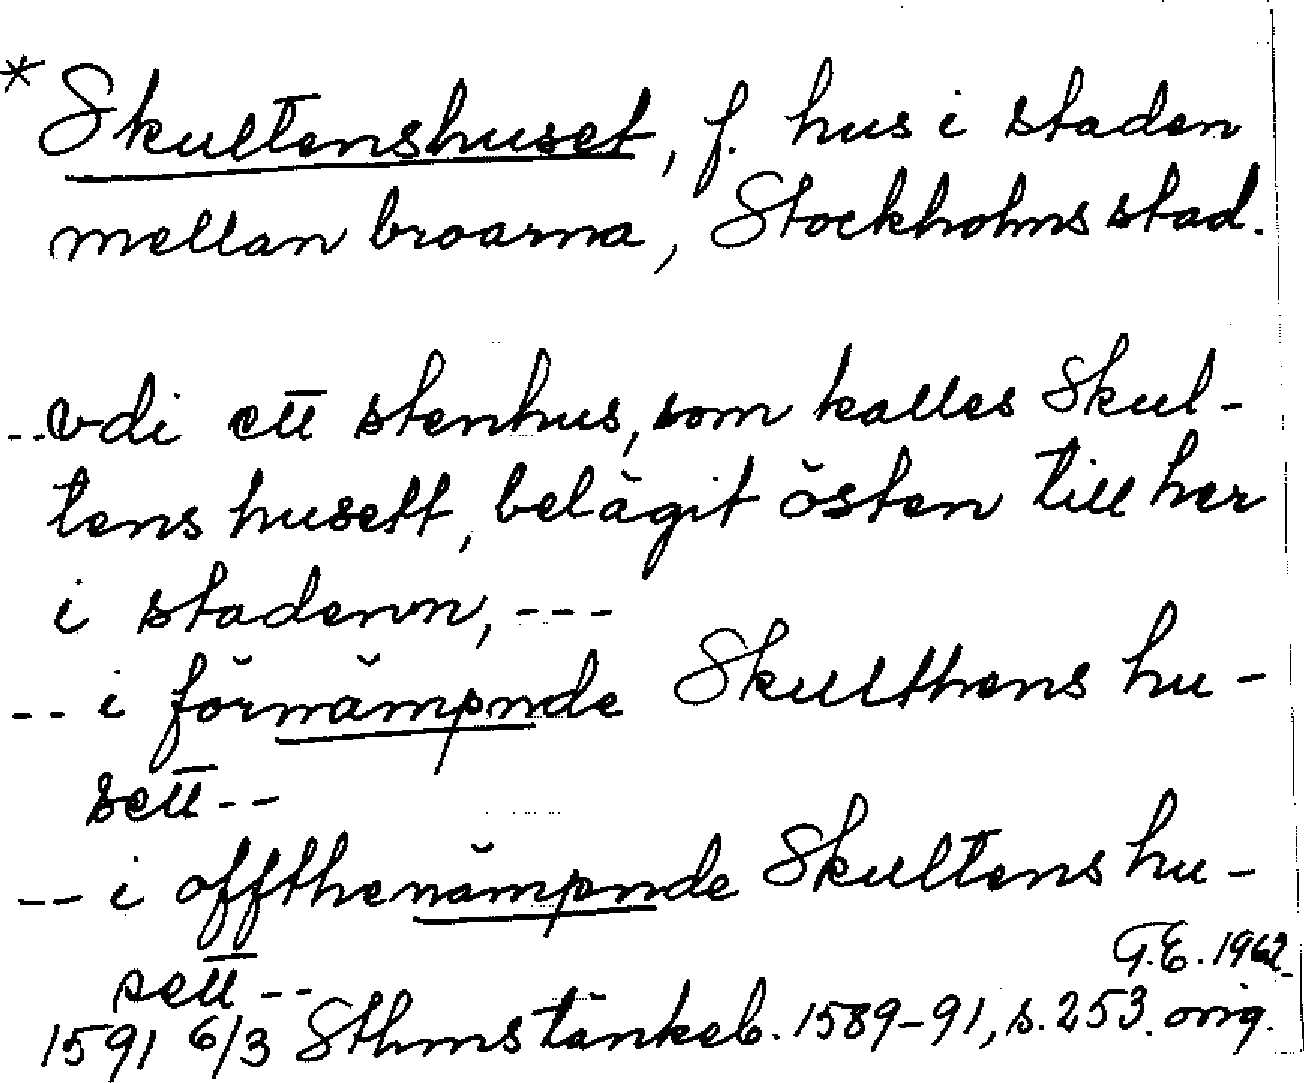 * Skultenshuset, f. hus i staden
mellan broarna, Stockholms stad.
--vdi ett stenhus, som kalles Skul-
tens husett, belägit östen till her
i stadenn, ---
-- i förnämpnde Skulthens hu-
sett--
-- i offthenämpnde Skultens hu-
sett--
G.E. 1962
1591 6/3 Sthms tänkeb. 1589-91, s. 253. orig.